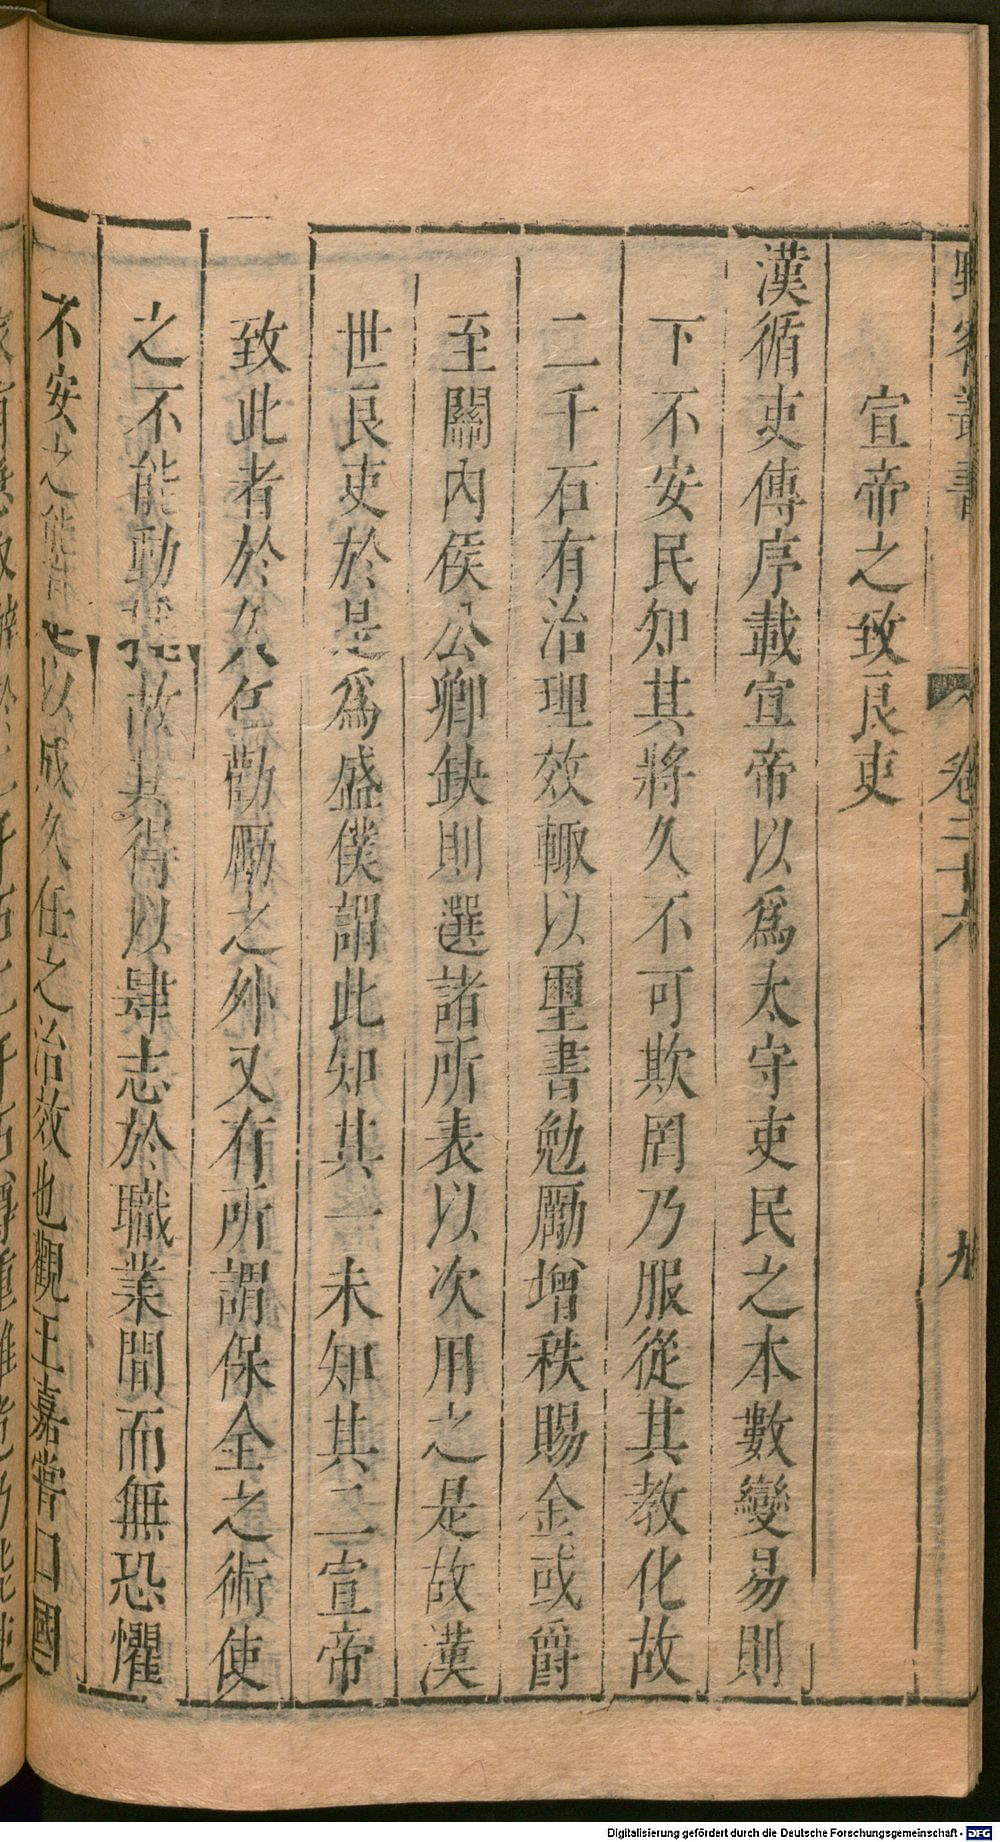 野客叢書 卷二十六 九
宣帝之致良吏
漢循吏傳序載宣帝以爲太守吏民之本數變易則
下不安民知其將久不可欺罔乃服從其教化故
二千石有治理效輙以璽書勉勵增秩賜金或爵
至關內侯公卿缺則選諸所表以次用之是故漢
世良吏於是爲盛僕謂此知其一未知其二宣帝
致此者於久任勸勵之外又有所謂保全之術使
之不能動搖故其得以肆志於職業閒而無恐懼
不安之態者是以成久任之治效也觀王嘉嘗曰國
Digitalisierung gefördert durch die Deutsche Forschungsgemeinschaft - DFG